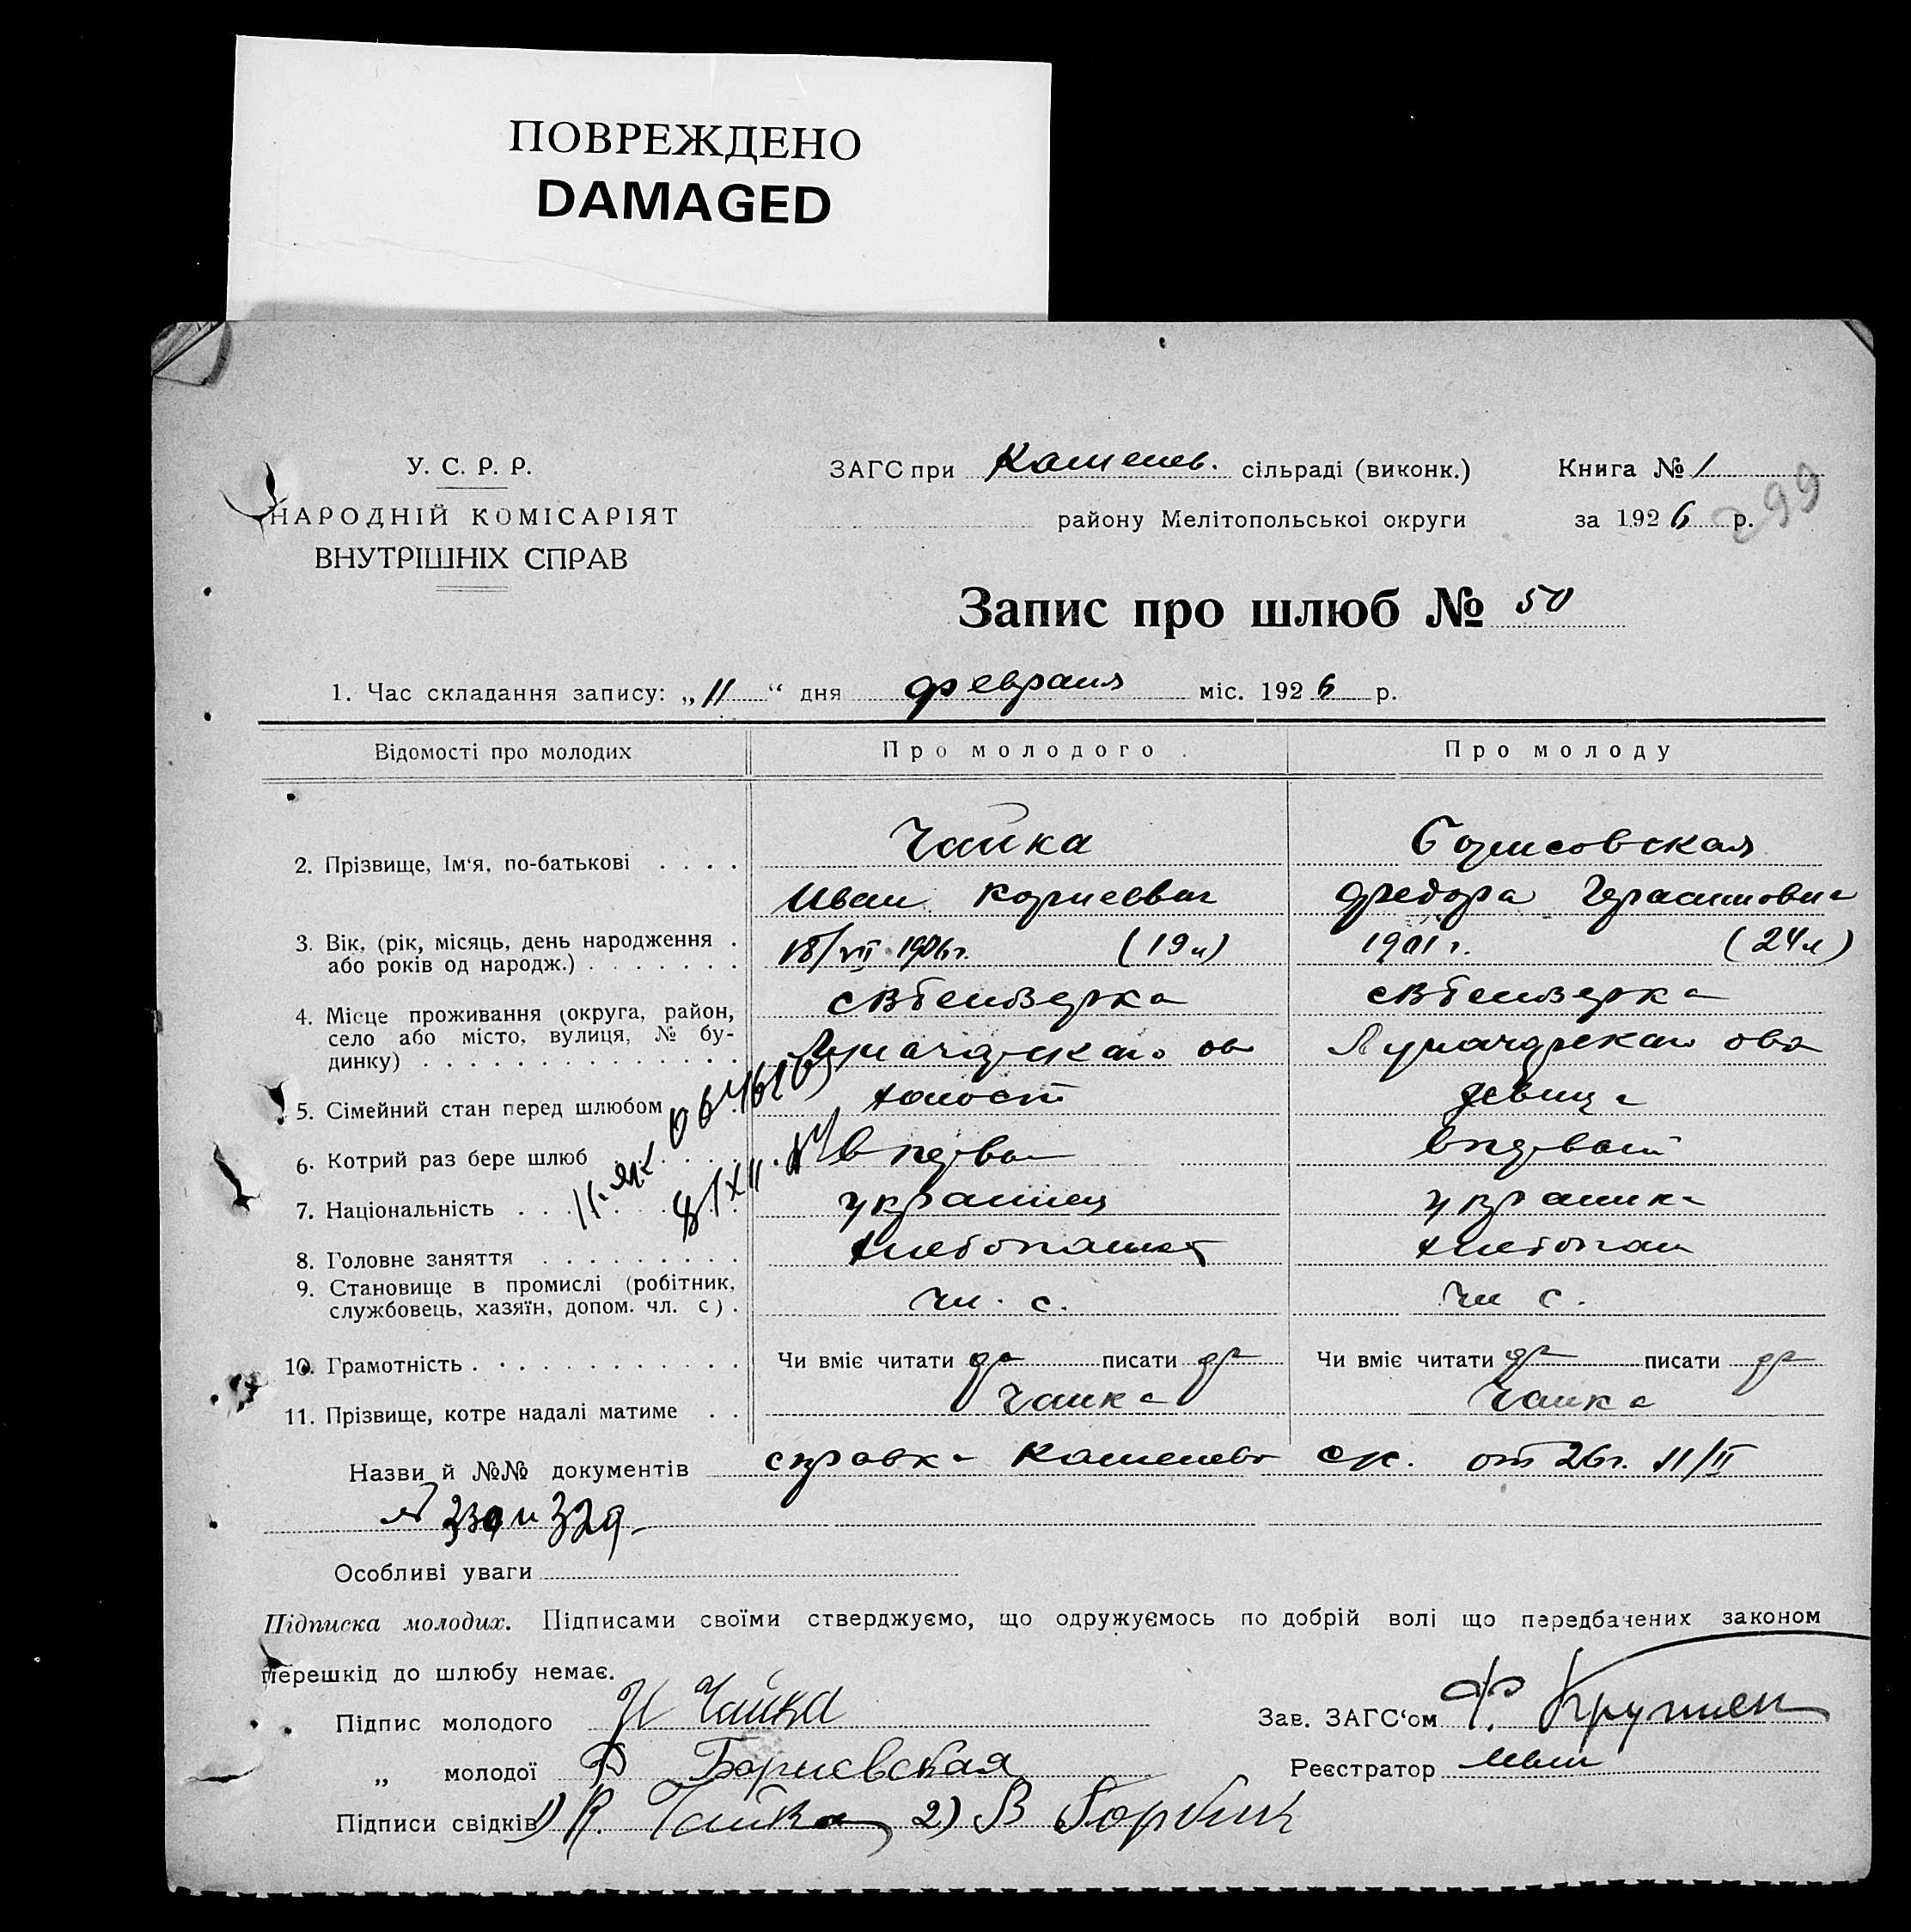 ПОВРЕЖДЕНО
DAMAGED
У. С. Р. Р.
НАРОДНІЙ КОМІСАРІЯТ
ВНУТРІШНІХ СПРАВ
ЗАГС при Каменев. сільраді (виконк.) Книга № 1
району Мелітопольської округи за 1926 р. 299
Запис про шлюб № 50
1. Час складання запису: „11“ дня февраля міс. 1926 р.
Відомості про молодих Про молодого Про молоду
2. Прізвище, Ім‘я, по-батькові Чайка Борисовская
Иван Корнеевич Федора Герасимовна
3. Вік, (рік, місяць, день народження або років од народж.) 18/VII 1906г. (19 л) 1901 г. (24 л)
4. Місце проживання (округа, район, село або місто, вулиця, № будинку)
5. Сімейний стан перед шлюбом холост девица
6. Котрий раз бере шлюб впервой впервой
7. Національність украинец украинка
8. Головне заняття хлебопашец хлебопаш
9. Становище в промислі (робітник, службовець, хазяїн, допом. чл. с). чл. с. чл с.
10. Грамотність Чи вміє читати да писати да Чи вміє читати да писати да
11. Прізвище, котре надалі матиме Чайка Чайка
Назви й №№ документів справка Каменев с/с. от 26г. 11/II
№ 330 и 329
Особливі уваги
Підписка молодих. Підписами своїми стверджуємо, що одружуємось по добрій волі що передбачених законом
перешкід до шлюбу немає.
Підпис молодого И Чайка Зав. ЗАГС‘ом Ф.
„ молодої Ф Борисвская Реєстратор
Підписи свідків 1) К. Чайка 2) В Горбик